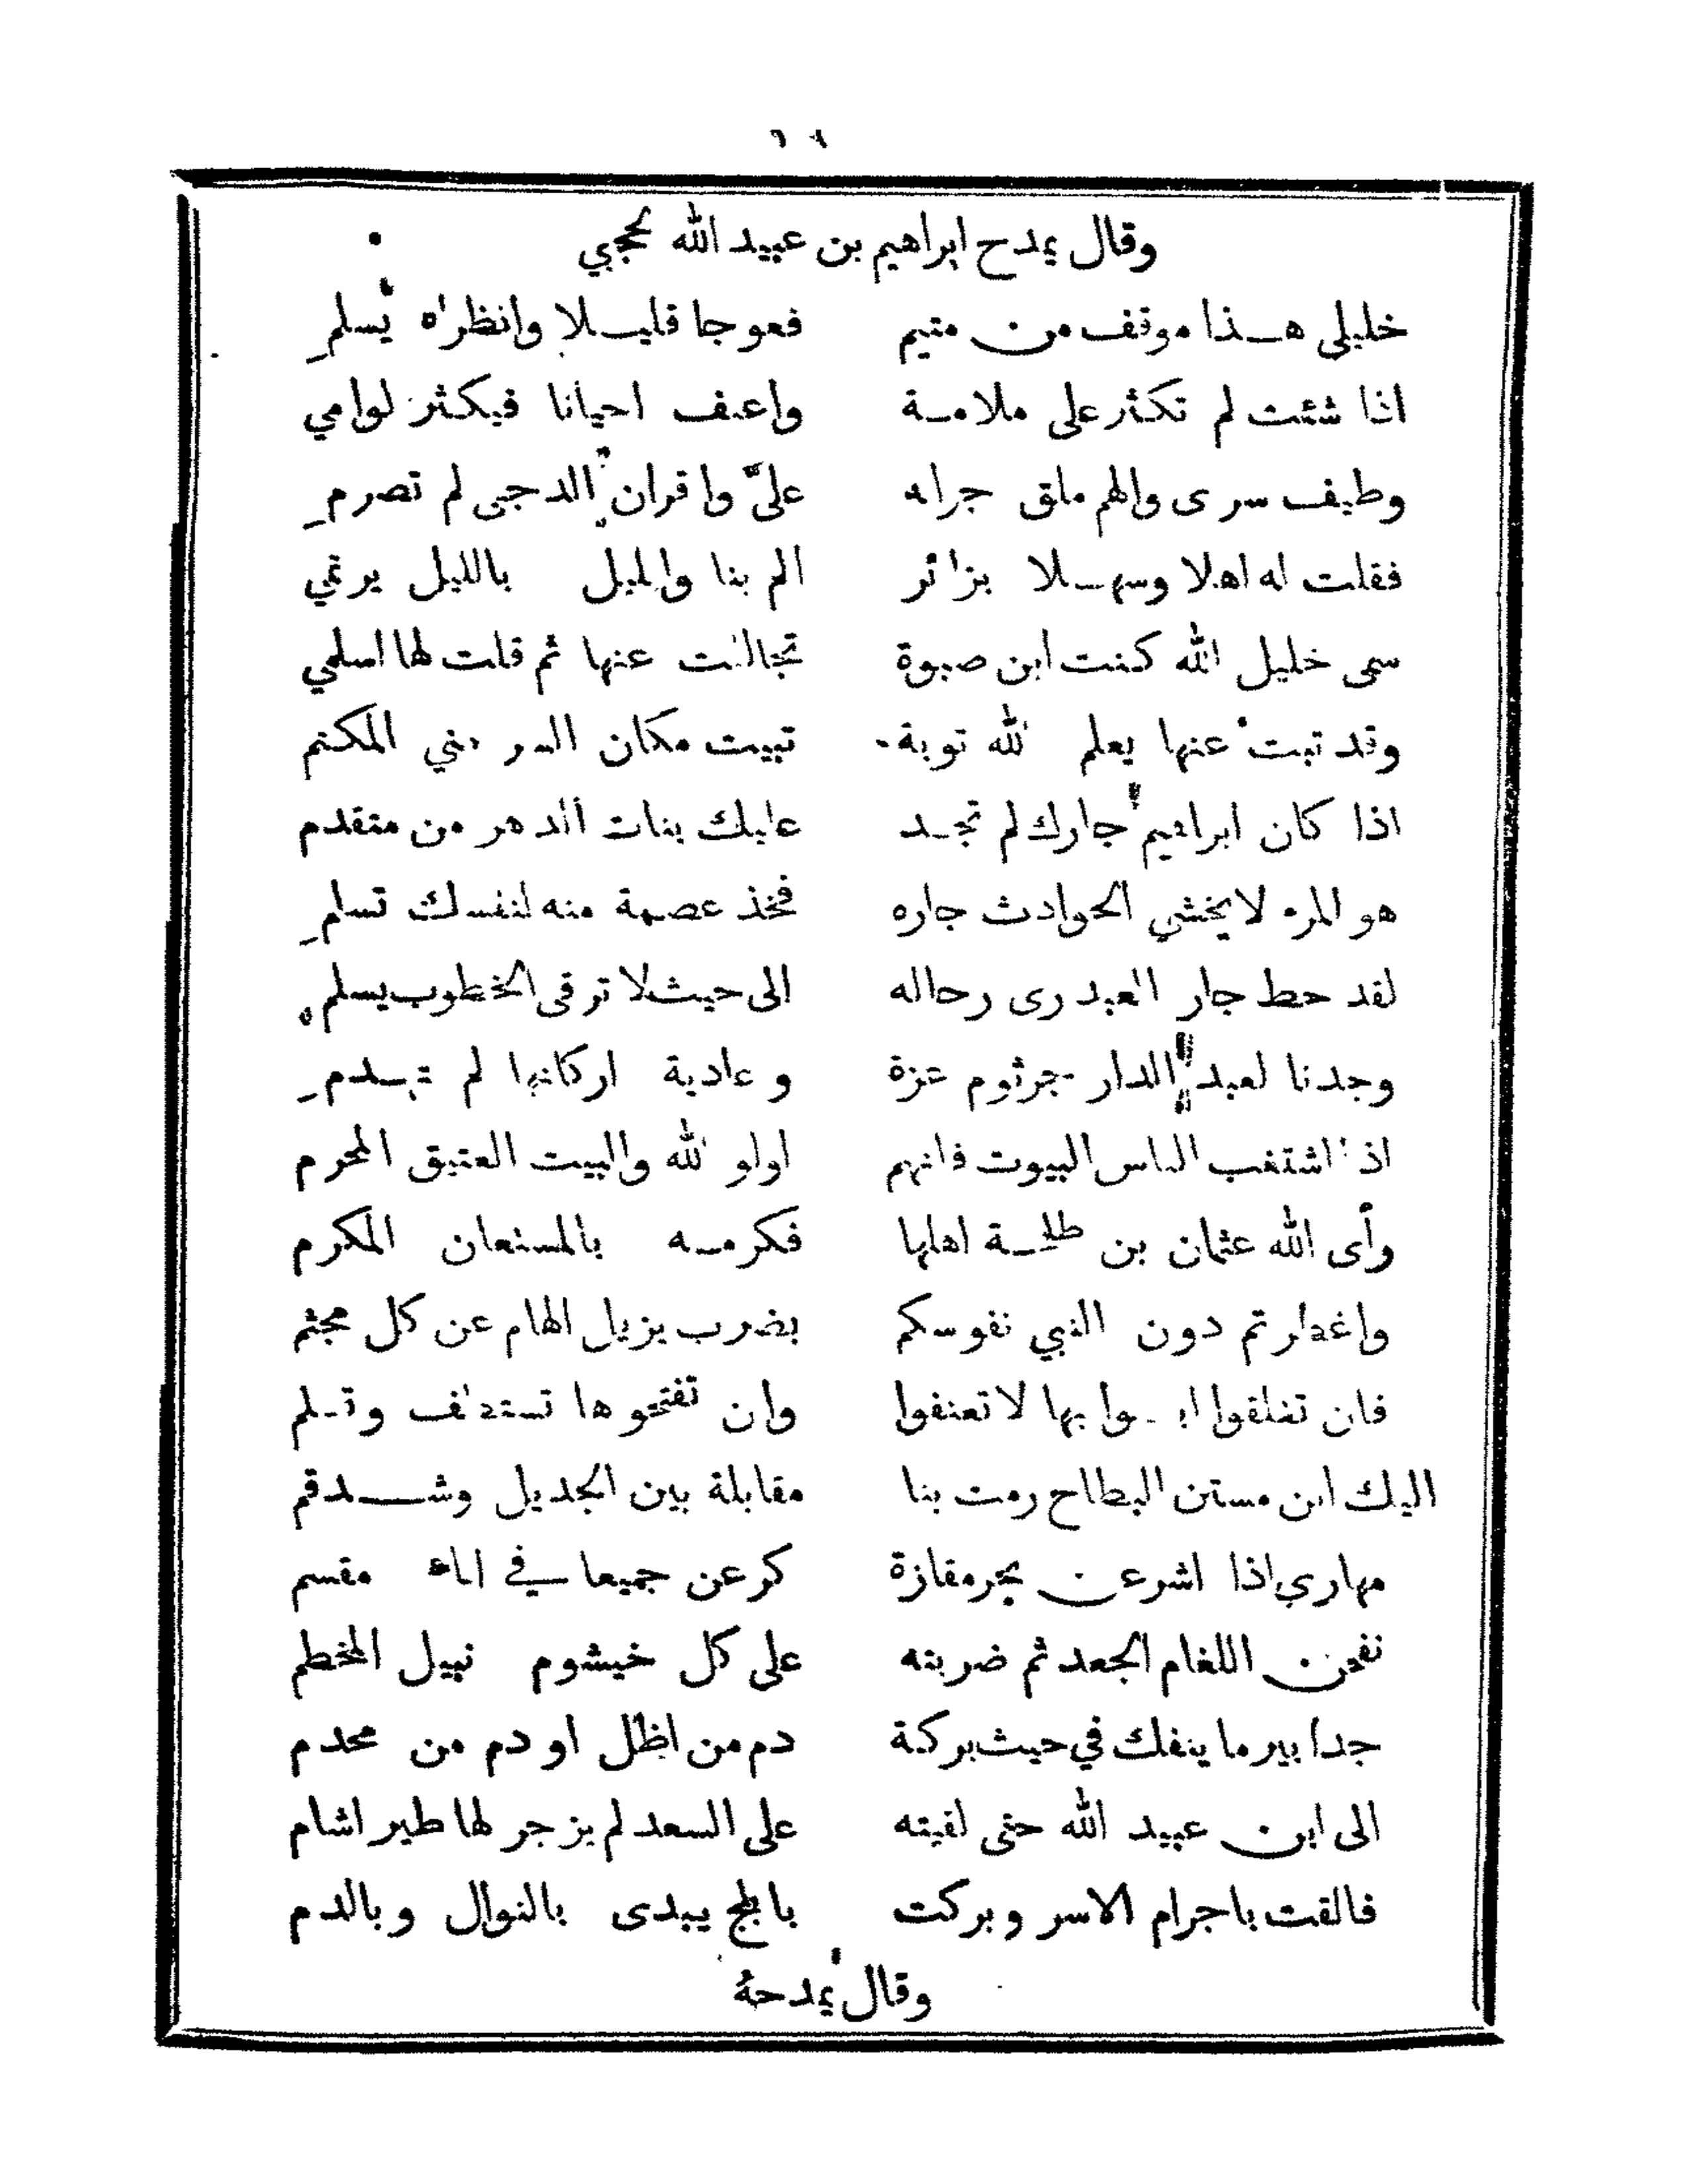 ٦٩
وقال يمدح ابراهيم بن عبيد الله لحجبي
خليلي هـذا موقف من متيم فعوجا قليـلا وانظراه يسلم
اذا شئت لم تكثر على ملامـة واعنف احيانا فيكثر لوامي
وطيف سرى والهم ملق جرانه عليّ واقران الدجى لم تصرم
فقلت له اهلا وسهـلا بزائر الم بنا والليل بالليل يرتمي
سمى خليل الله كنت ابن صبوة تجاللت عنها ثم قلت لها اسلمي
وقد تبت عنها يعلم الله توبة تبيت مكان السر مني المكتم
اذا كان ابراهيم جارك لم تجـد عليك بنات الدهر من متقدم
هو المرء لا يخشي الحوادث جاره فخذ عصمة منه لنفسك تسلم
لقد حط جار العبدرى رحاله الى حيث لا ترقى الخطوب بسلم
وجدنا لعبد الدار جرثوم عزة وعادية اركانها لم تهـدم
اذا اشتغب الناس البيوت فانهم اولو الله والبيت العتيق المحرم
رأى الله عثمان بن طلحـة اهلها فكرمـه بالمستعان المكرم
واغدارتم دون النبي نفوسكم بضرب يزيل الهام عن كل مجثم
فان تغلقوا ابـوابها لا تعنفوا وان تفتحوها تستضف وتـلم
اليك ابن مستن البطاح رمت بنا مقابلة بين الجديل وشـدقم
مهاري اذا اشرعن بحر مفازة كرعن جميعا في اناء مقسم
نفحن اللغام الجعد ثم ضربنه على كل خيشوم نبيل المخطم
جدابير ما ينفك في حيث بركة دم من اظل او دم من مخدم
الى ابن عبيد الله حتى لقيته على السعد لم يزجر لها طير اشام
فالقت باجرام الاسر وبركت بابلج يبدى بالنوال وبالدم
وقال يمدحهُ